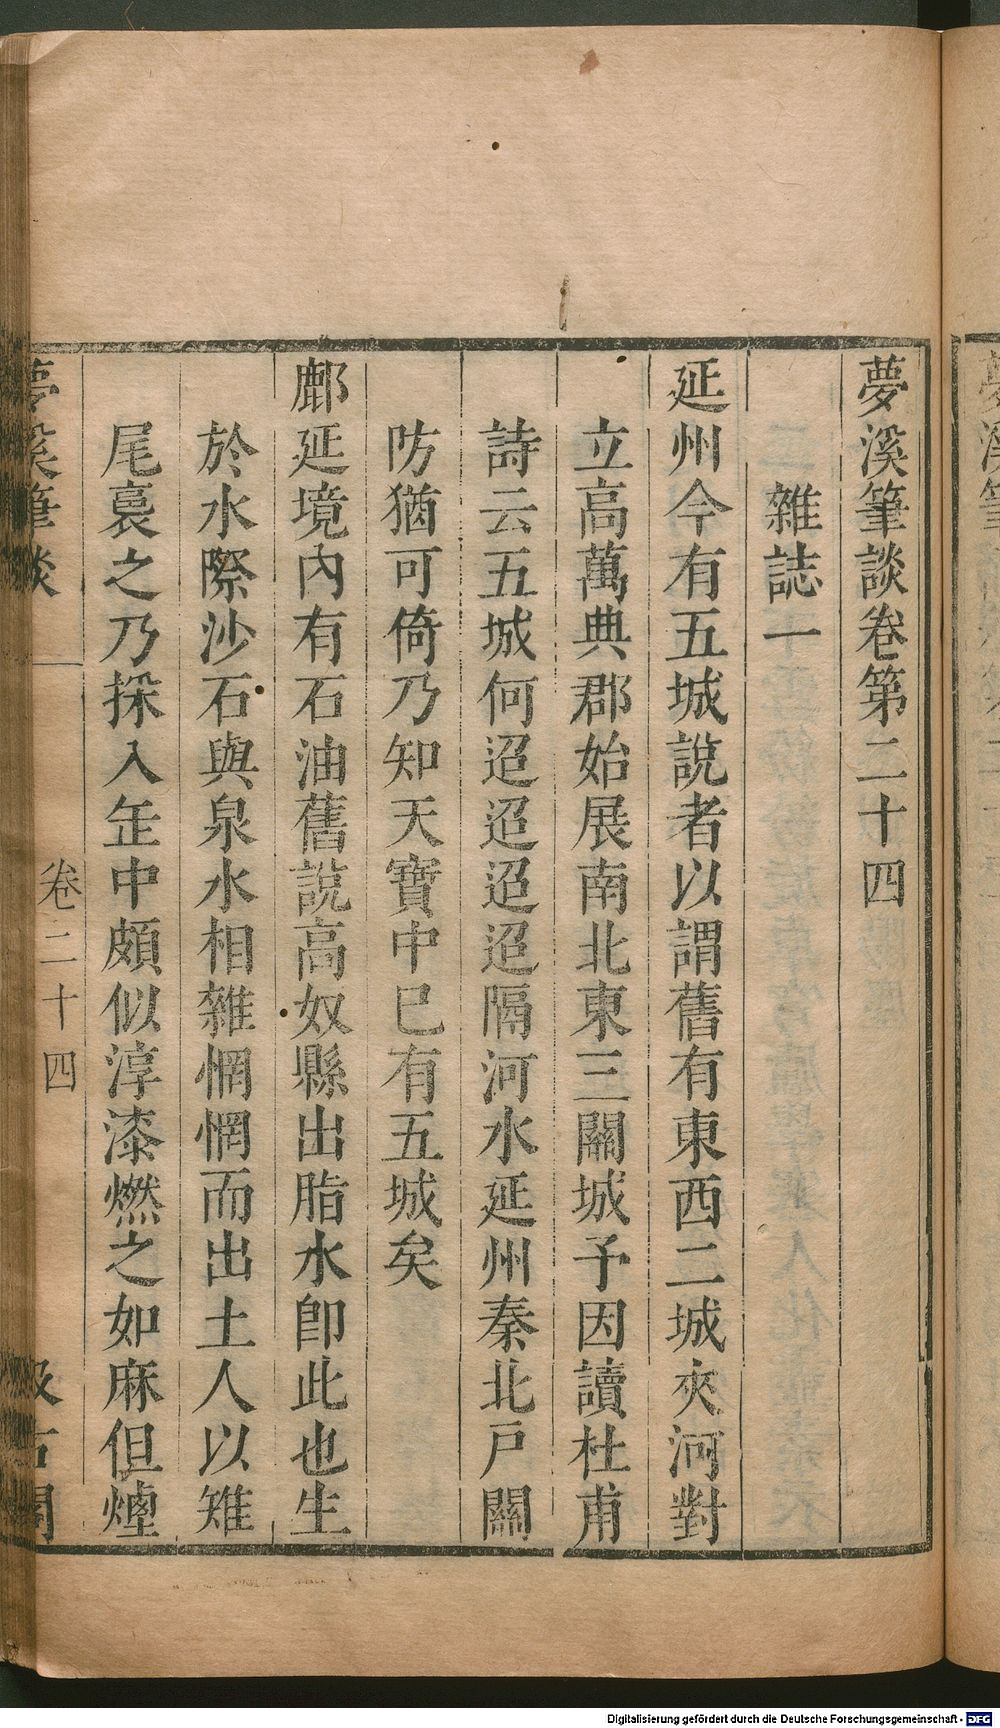 夢溪筆談卷第二十四
雜誌一
延州今有五城說者以謂舊有東西二城夾河對
立高萬典郡始展南北東三關城予因讀杜甫
詩云五城何迢迢迢迢隔河水延州秦北戶關
防猶可倚乃知天寶中已有五城矣
鄜延境內有石油舊說高奴縣出脂水卽此也生
於水際沙石與泉水相雜惘惘而出土人以雉
尾裛之乃採入缶中頗似淳漆燃之如麻但煙
夢溪筆談
卷二十四
汲古閣
Digitalisierung gefördert durch die Deutsche Forschungsgemeinschaft - DFG